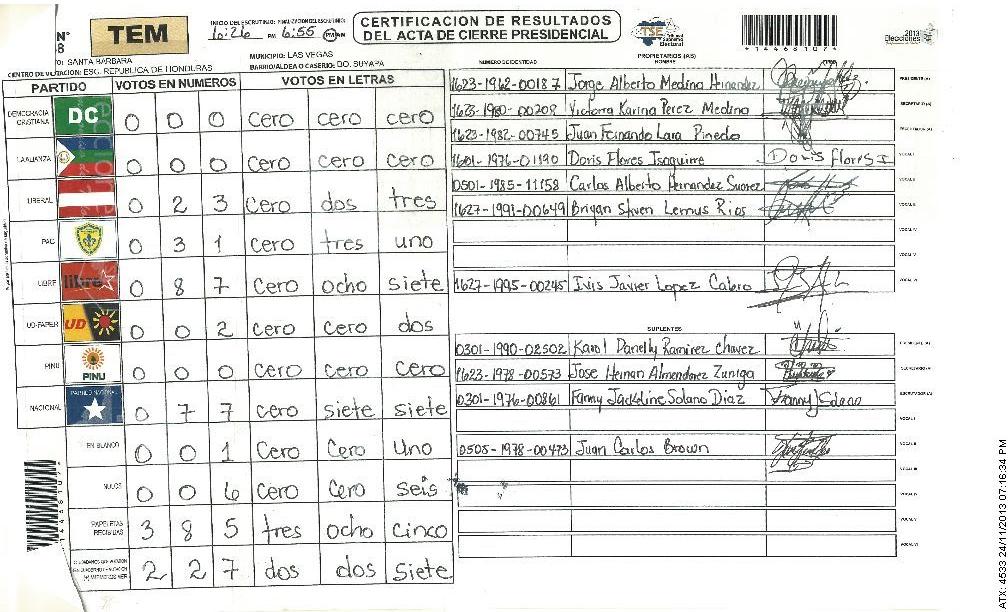 N°
8
TEM
INICIO DEL ESCRUTINIO: FINALIZACION DEL ESCRUTINIO:
6:26 PM 6:55 PM AM
CERTIFICACION DE RESULTADOS
DEL ACTA DE CIERRE PRESIDENCIAL
TSE Tribunal Supremo Electoral
14468107
2013 Elecciones
SANTA BARBARA
MUNICIPIO: LAS VEGAS
CENTRO DE VOTACION: ESC. REPUBLICA DE HONDURAS
BARRIO/ALDEA O CASERIO: DO. SUYAPA
PARTIDO VOTOS EN NUMEROS VOTOS EN LETRAS
DEMOCRACIA CRISTIANA DC 0 0 0 cero cero cero
LA ALIANZA 0 0 0 cero cero cero
LIBERAL 0 2 3 cero dos tres
PAC 0 3 1 cero tres uno
LIBRE libre 0 8 7 cero ocho siete
UD-FAPER UD 0 0 2 cero cero dos
PINU PINU 0 0 0 cero cero cero
NACIONAL PARTIDO NACIONAL 0 7 7 cero siete siete
EN BLANCO 0 0 1 cero cero uno
NULOS 0 0 6 cero cero seis
PAPELETAS RECIBIDAS 3 8 5 tres ocho cinco
2 2 7 dos dos siete
14468107
NUMERO DE IDENTIDAD PROPIETARIOS (AS) NOMBRE
1623-1962-00187 Jorge Alberto Medina Hernandez PRESIDENTE (A)
1623-1980-00208 Victoria Karina Perez Medina SECRETARIO (A)
1623-1982-00745 Juan Fernando Lara Pinedo ESCRUTADOR (A)
1601-1976-01190 Doris Flores Isaguirre Doris Flores I VOCAL I
0501-1985-11158 Carlos Alberto Hernandez Suarez VOCAL II
1627-1991-00649 Briyan Stiven Lemus Rios VOCAL III
VOCAL IV
VOCAL V
1627-1995-00245 Ivis Javier Lopez Calero VOCAL VI
SUPLENTES
0301-1990-02502 Karol Danelly Ramirez Chavez PRESIDENTE (A)
1623-1978-00573 Jose Hernan Almendarez Zuniga SECRETARIO (A)
0301-1976-00861 Fanny Jackeline Solano Diaz Fanny J Solano ESCRUTADOR (A)
VOCAL I
0505-1978-00473 Juan Carlos Brown VOCAL II
VOCAL III
VOCAL IV
VOCAL V
VOCAL VI
ATX: 4533 24/11/2013 07:16:34 PM